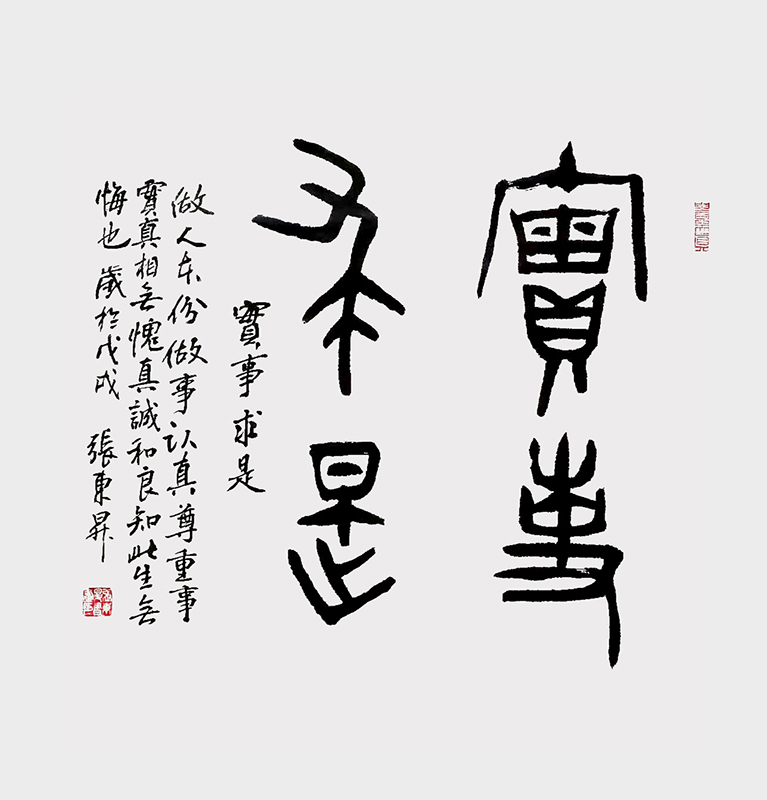 實事
求是
實事求是
做人本份做事认真尊重事
實真相无愧真誠和良知此生无
悔也歲於戊戌
張東昇